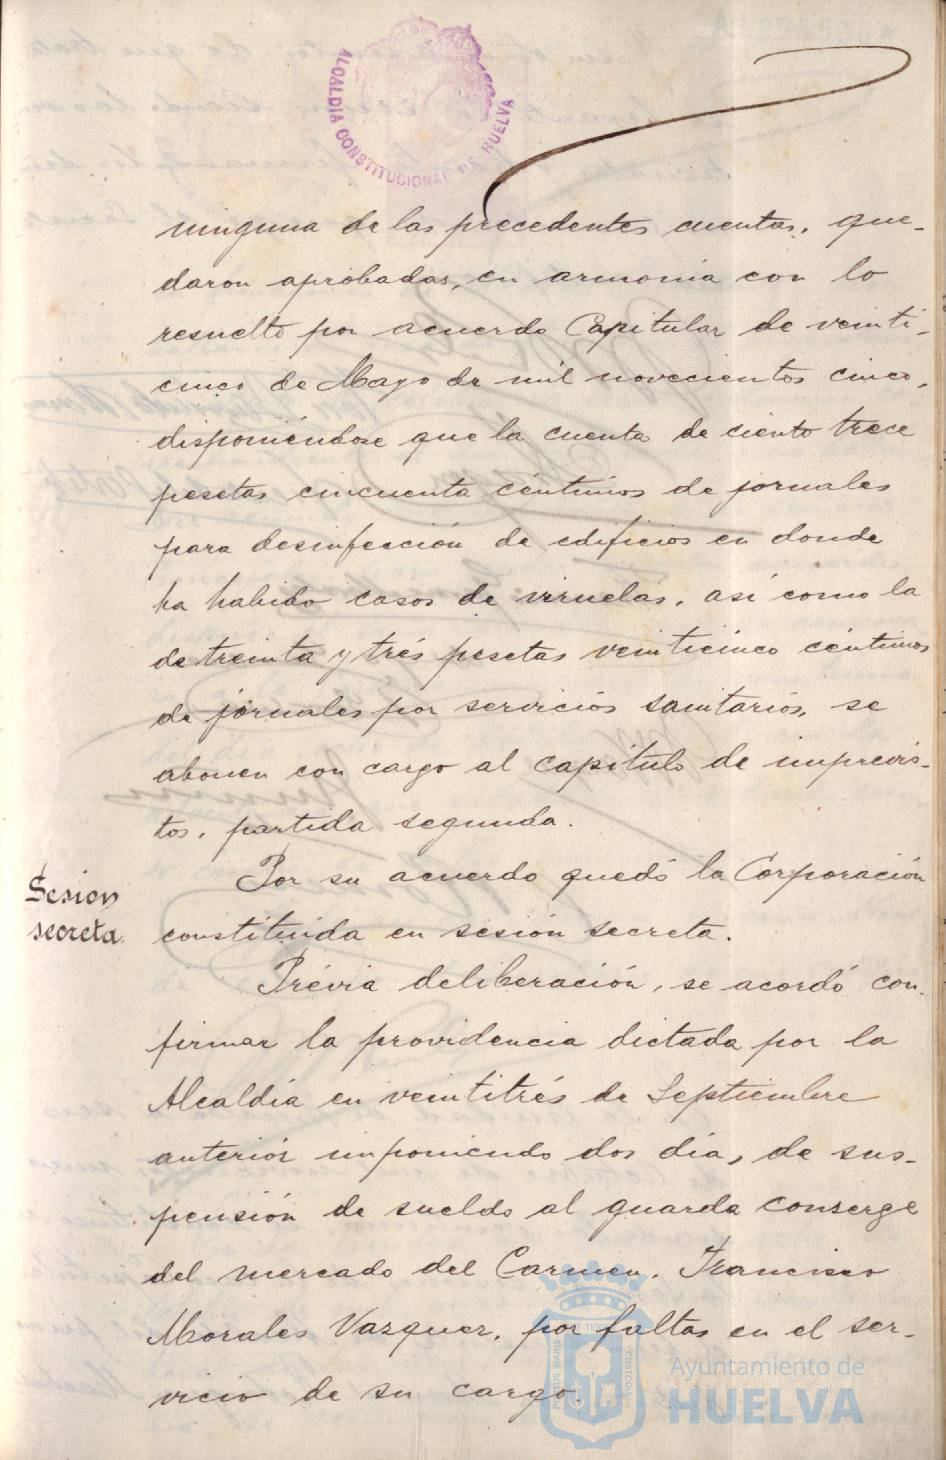 ALCALDIA CONSTITUCIONAL DE HUELVA
ninguna de las precedentes cuentas, que-
daron aprobadas, en armonía con lo
resuelto por acuerdo Capitular de veinti-
cinco de Mayo de mil novecientos cinco,
disponiéndose que la cuenta de ciento trece
pesetas cincuenta céntimos de jornales
para desinfección de edificios en donde
ha habido casos de viruelas, así como la
de treinta y trés pesetas veinticinco céntimos
de jornales por servicios sanitarios, se
abonen con cargo al capítulo de imprevis-
tos, partida segunda.
Sesion
secreta.
Por su acuerdo quedó la Corporación
constituida en sesión secreta.
Prévia deliberación, se acordó con-
firmar la providencia dictada por la
Alcaldía en veintitrés de Septiembre
anterior imponiendo dos dias, de sus-
pensión de sueldo al guarda conserge
del mercado del Carmen, Francisco
Morales Vazquez, por faltas en el ser-
vicio de su cargo.
Ayuntamiento de
HUELVA